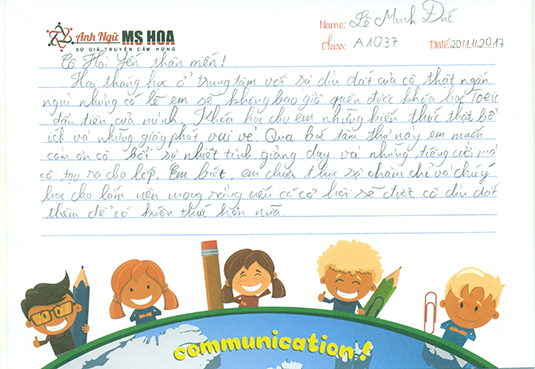 Anh Ngữ MS HOA
SỨ GIẢ TRUYỀN CẢM HỨNG
Name: Lê Minh Đức
Class: A1037 Date: 20.11.2017
Cô Hải Yến thân mến!
Hai tháng học ở trung tâm với sự dìu dắt của cô thật ngắn
ngủi nhưng có lẽ em sẽ không bao giờ quên được khóa học Toeic
đầu tiên của mình. Khóa học cho em những kiến thức thật bổ
ích và những giây phút vui vẻ. Qua bức tâm thư này em muốn
cảm ơn cô bởi sự nhiệt tình giảng dạy và những tiếng cười mà
cô tạo ra cho lớp. Em biết, em chưa thực sự chăm chỉ và chú ý
học cho lắm nên mong rằng nếu có cơ hội sẽ được cô dìu dắt
thêm để có kiến thức hơn nữa.
communication!